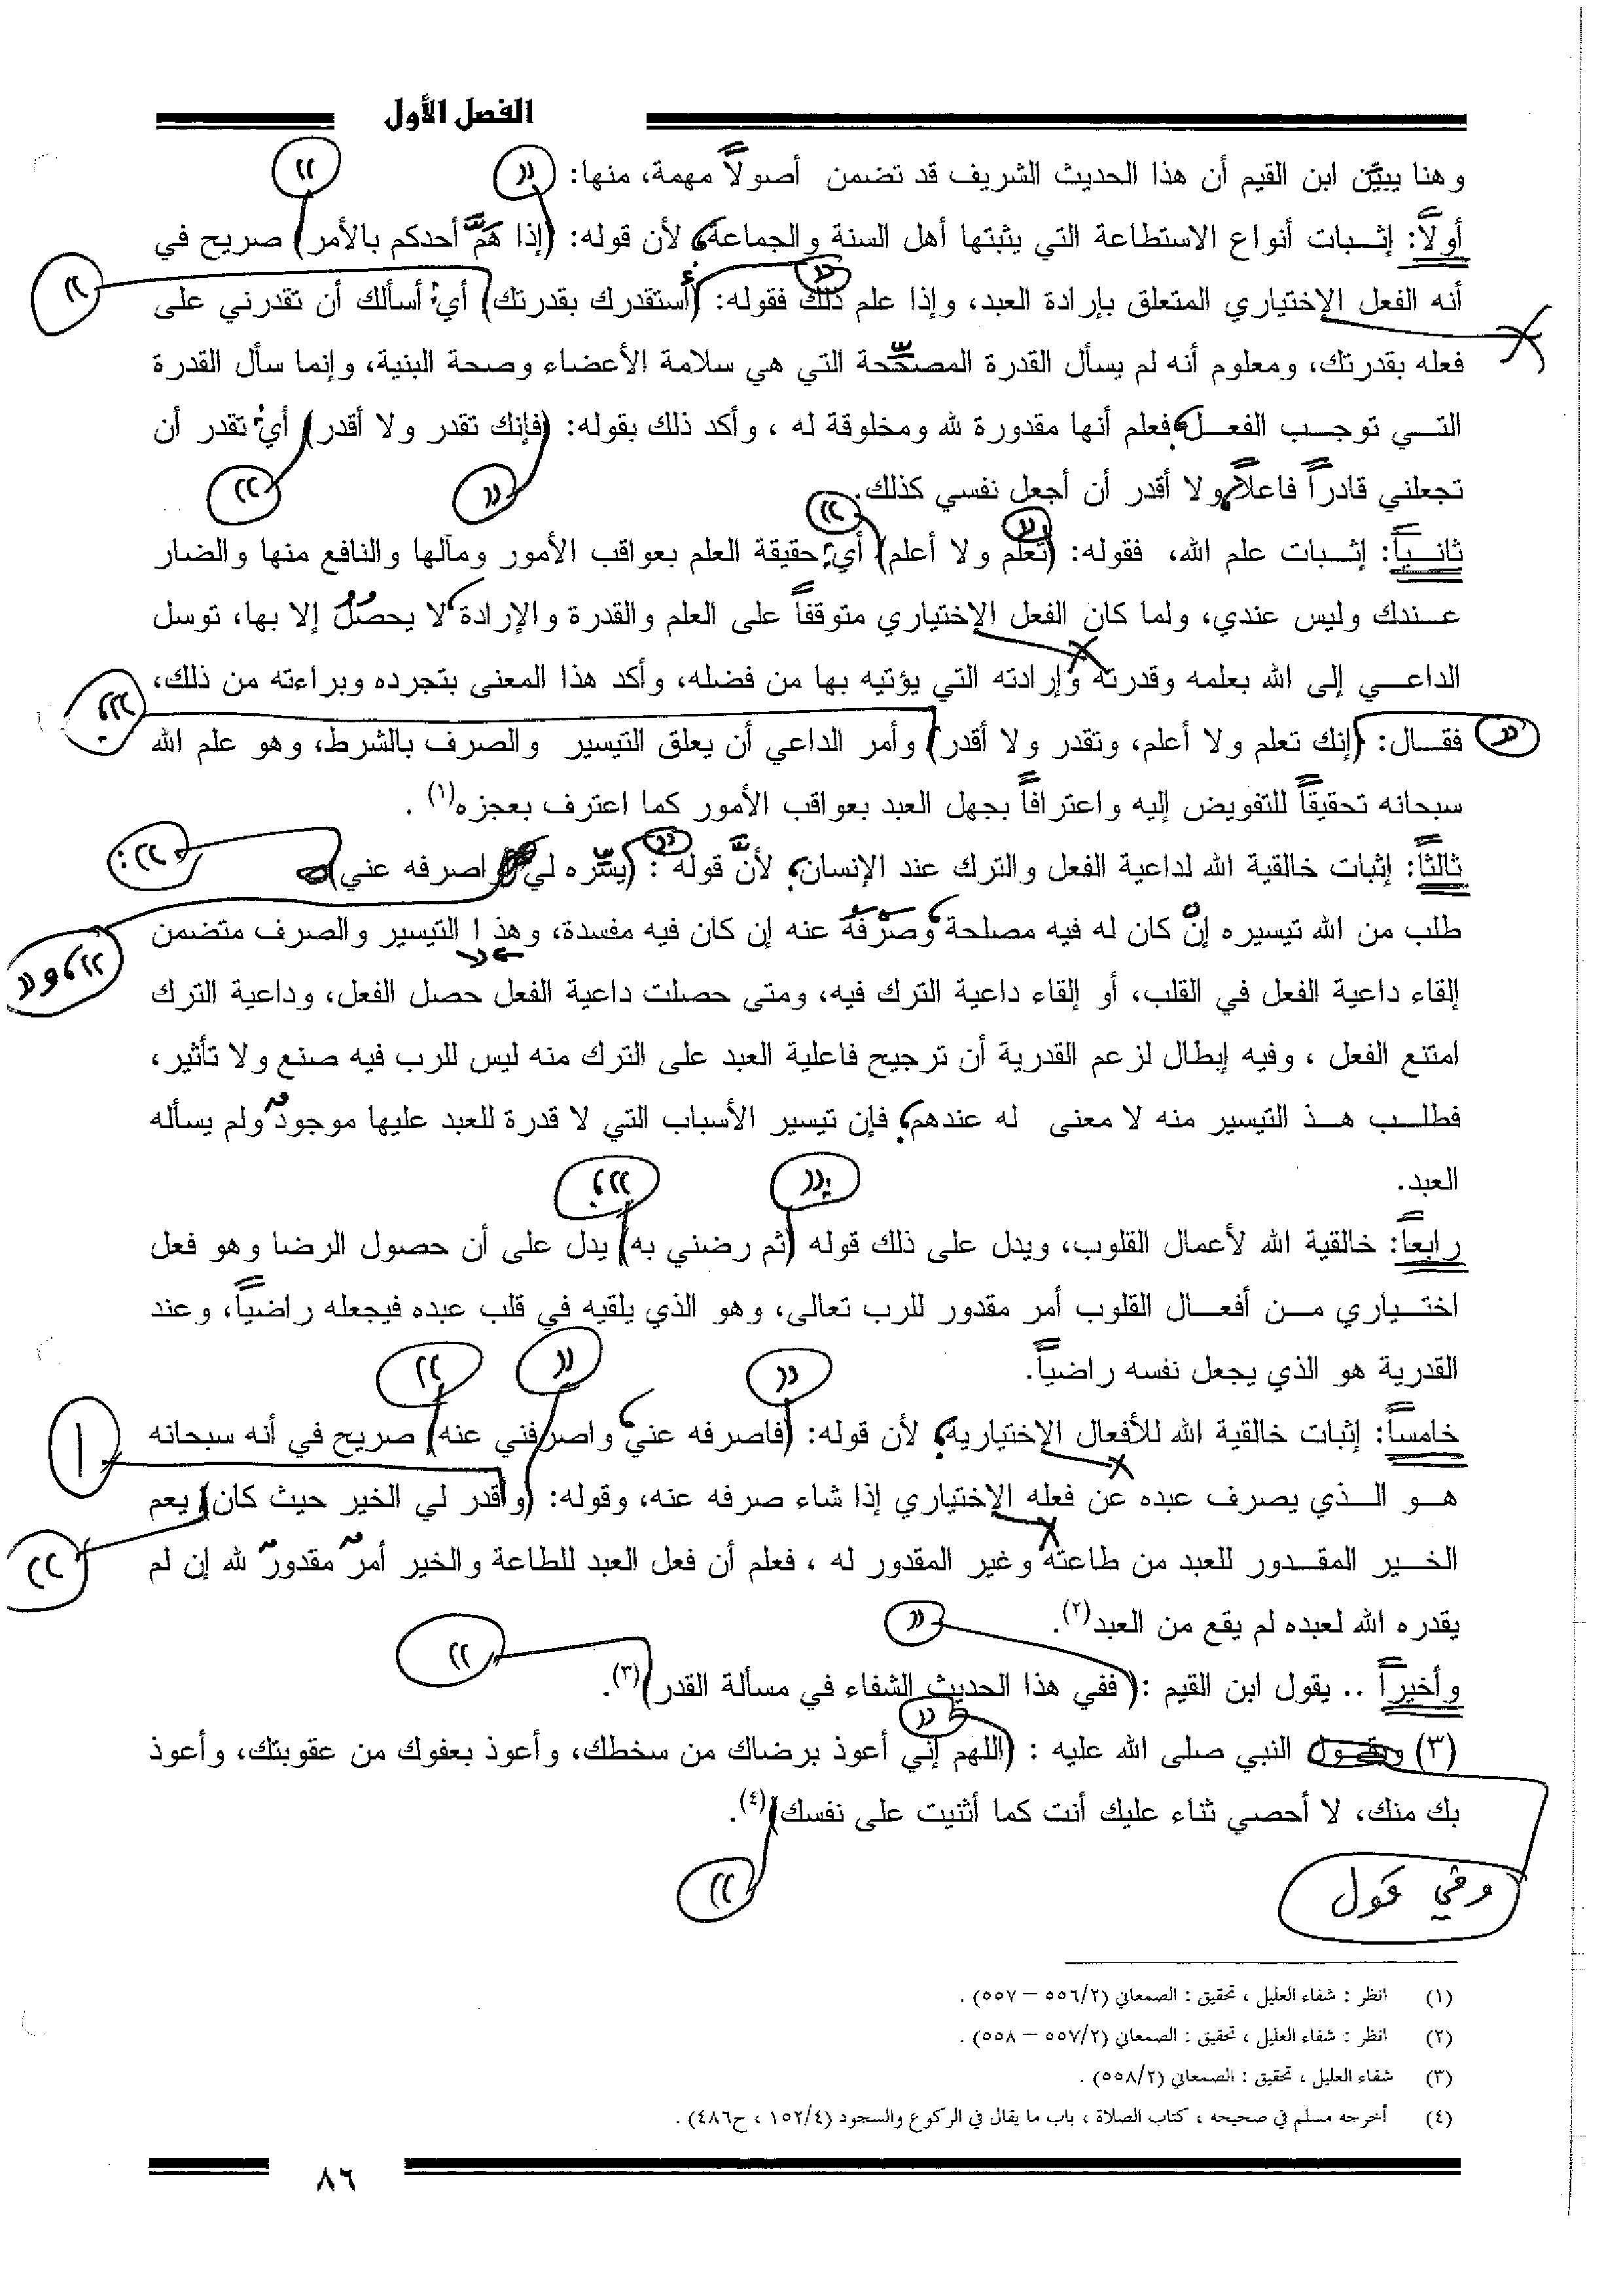 الفصل الأول
وهنا يبيّن ابن القيم أن هذا الحديث الشريف قد تضمن أصولاً مهمة، منها:
أولاً: إثبات أنواع الاستطاعة التي يثبتها أهل السنة والجماعة، لأن قوله: (إذا هَمَّ أحدكم بالأمر) صريح في
أنه الفعل الإختياري المتعلق بإرادة العبد، وإذا علم ذلك فقوله: (أستقدرك بقدرتك) أي: أسألك أن تقدرني على
فعله بقدرتك، ومعلوم أنه لم يسأل القدرة المصحِّحة التي هي سلامة الأعضاء وصحة البنية، وإنما سأل القدرة
التي توجب الفعل، فعلم أنها مقدورة لله ومخلوقة له ، وأكد ذلك بقوله: (فإنك تقدر ولا أقدر) أي: تقدر أن
تجعلني قادراً فاعلاً، ولا أقدر أن أجعل نفسي كذلك.
ثانياً: إثبات علم الله، فقوله: (تعلم ولا أعلم) أي: حقيقة العلم بعواقب الأمور ومآلها والنافع منها والضار
عندك وليس عندي، ولما كان الفعل الإختياري متوقفاً على العلم والقدرة والإرادة، لا يحصُلُ إلا بها، توسل
الداعي إلى الله بعلمه وقدرته وإرادته التي يؤتيه بها من فضله، وأكد هذا المعنى بتجرده وبراءته من ذلك،
فقال: (إنك تعلم ولا أعلم، وتقدر ولا أقدر) وأمر الداعي أن يعلق التيسير والصرف بالشرط، وهو علم الله
سبحانه تحقيقاً للتفويض إليه واعترافاً بجهل العبد بعواقب الأمور كما اعترف بعجزه(١) .
ثالثاً: إثبات خالقية الله لداعية الفعل والترك عند الإنسان؛ لأنَّ قوله : (يسِّره لي اصرفه عني)
طلب من الله تيسيره إنْ كان له فيه مصلحة، وصَرْفَهُ عنه إن كان فيه مفسدة، وهذ ا التيسير والصرف متضمن
إلقاء داعية الفعل في القلب، أو إلقاء داعية الترك فيه، ومتى حصلت داعية الفعل حصل الفعل، وداعية الترك
امتنع الفعل ، وفيه إبطال لزعم القدرية أن ترجيح فاعلية العبد على الترك منه ليس للرب فيه صنع ولا تأثير،
فطلب هذ التيسير منه لا معنى له عندهم؛ فإن تيسير الأسباب التي لا قدرة للعبد عليها موجودٌ ولم يسأله
العبد.
رابعاً: خالقية الله لأعمال القلوب، ويدل على ذلك قوله (ثم رضني به) يدل على أن حصول الرضا وهو فعل
اختياري من أفعال القلوب أمر مقدور للرب تعالى، وهو الذي يلقيه في قلب عبده فيجعله راضياً، وعند
القدرية هو الذي يجعل نفسه راضياً.
خامساً: إثبات خالقية الله للأفعال الإختيارية، لأن قوله: (فاصرفه عني، واصرفني عنه) صريح في أنه سبحانه
هو الذي يصرف عبده عن فعله الإختياري إذا شاء صرفه عنه، وقوله: (وأقدر لي الخير حيث كان) يعم
الخير المقدور للعبد من طاعته وغير المقدور له ، فعلم أن فعل العبد للطاعة والخير أمرٌ مقدورٌ لله إن لم
يقدره الله لعبده لم يقع من العبد(٢).
وأخيراً .. يقول ابن القيم :( ففي هذا الحديث الشفاء في مسألة القدر)(٣).
(٣) وفي قول النبي صلى الله عليه : (اللهم إني أعوذ برضاك من سخطك، وأعوذ بعفوك من عقوبتك، وأعوذ
بك منك، لا أحصي ثناء عليك أنت كما أثنيت على نفسك)(٤).
(١) انظر : شفاء العليل ، تحقيق : الصمعاني (٥٥٦/٢ – ٥٥٧) .
(٢) انظر : شفاء العليل ، تحقيق : الصمعاني (٥٥٧/٢ – ٥٥٨) .
(٣) شفاء العليل ، تحقيق : الصمعاني (٥٥٨/٢) .
(٤) أخرجه مسلم في صحيحه ، كتاب الصلاة ، باب ما يقال في الركوع والسجود (١٥٢/٤ ، ح٤٨٦) .
٨٦